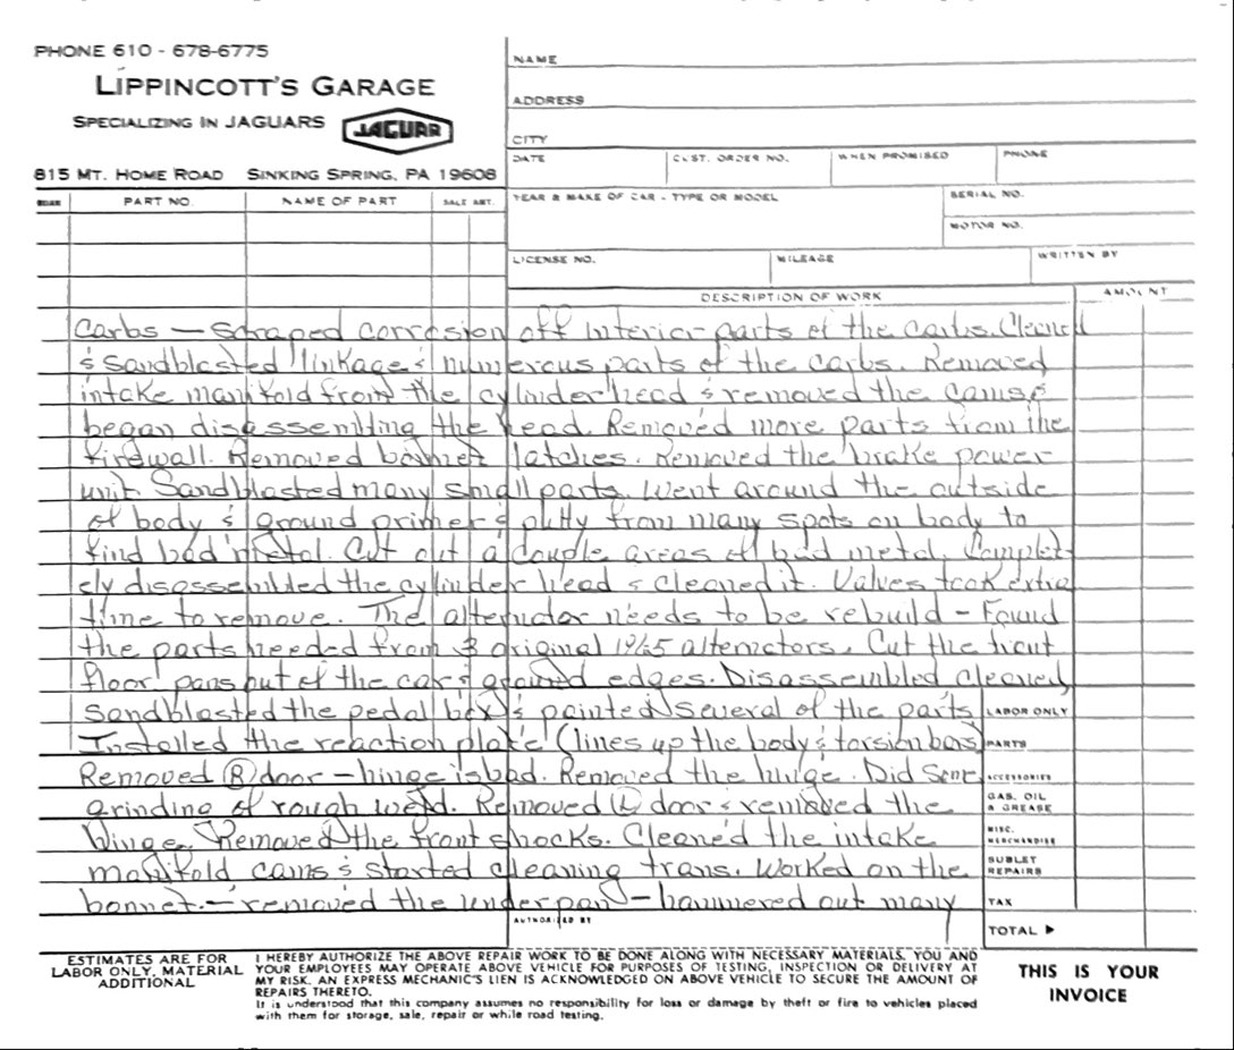 PHONE 610 - 678-6775
LIPPINCOTT'S GARAGE
SPECIALIZING IN JAGUARS
JAGUAR
815 MT. HOME ROAD SINKING SPRING, PA 19608
NAME
ADDRESS
CITY
DATE
CUST. ORDER NO.
WHEN PROMISED
PHONE
PART NO.
NAME OF PART
SALE AMT.
YEAR & MAKE OF CAR - TYPE OR MODEL
SERIAL NO.
MOTOR NO.
LICENSE NO.
MILEAGE
WRITTEN BY
DESCRIPTION OF WORK
AMOUNT
Carbs — Scraped corrosion off interior parts of the carbs. Cleaned
& sandblasted linkage & numerous parts of the carbs. Removed
intake manifold from the cylinder head & removed the cams &
began disassembling the head. Removed more parts from the
firewall. Removed bonnet latches. Removed the brake power
unit. Sandblasted many small parts. Went around the outside
of body & ground primer & putty from many spots on body to
find bad metal. Cut out a couple areas of bad metal. Complet-
ely disassembled the cylinder head & cleaned it. Valves took extra
time to remove. The alternator needs to be rebuild - Found
the parts needed from 3 original 1965 alternators. Cut the front
floor pans out of the car & ground edges. Disassembled cleaned,
sandblasted the pedal box & painted several of the parts
Installed the reaction plate (lines up the body & torsion bars)
Removed (R) door - hinge is bad. Removed the hinge. Did some
grinding of rough weld. Removed (L) door & removed the
hinge. Removed the front shocks. Cleaned the intake
manifold cams & started cleaning trans. Worked on the
bonnet. - removed the underpan - hammered out many
LABOR ONLY
PARTS
ACCESSORIES
GAS, OIL
& GREASE
MISC.
MERCHANDISE
SUBLET
REPAIRS
TAX
TOTAL ▶
AUTHORIZED BY
ESTIMATES ARE FOR
LABOR ONLY, MATERIAL
ADDITIONAL
I HEREBY AUTHORIZE THE ABOVE REPAIR WORK TO BE DONE ALONG WITH NECESSARY MATERIALS. YOU AND
YOUR EMPLOYEES MAY OPERATE ABOVE VEHICLE FOR PURPOSES OF TESTING, INSPECTION OR DELIVERY AT
MY RISK. AN EXPRESS MECHANIC'S LIEN IS ACKNOWLEDGED ON ABOVE VEHICLE TO SECURE THE AMOUNT OF
REPAIRS THERETO.
It is understood that this company assumes no responsibility for loss or damage by theft or fire to vehicles placed
with them for storage, sale, repair or while road testing.
THIS IS YOUR
INVOICE